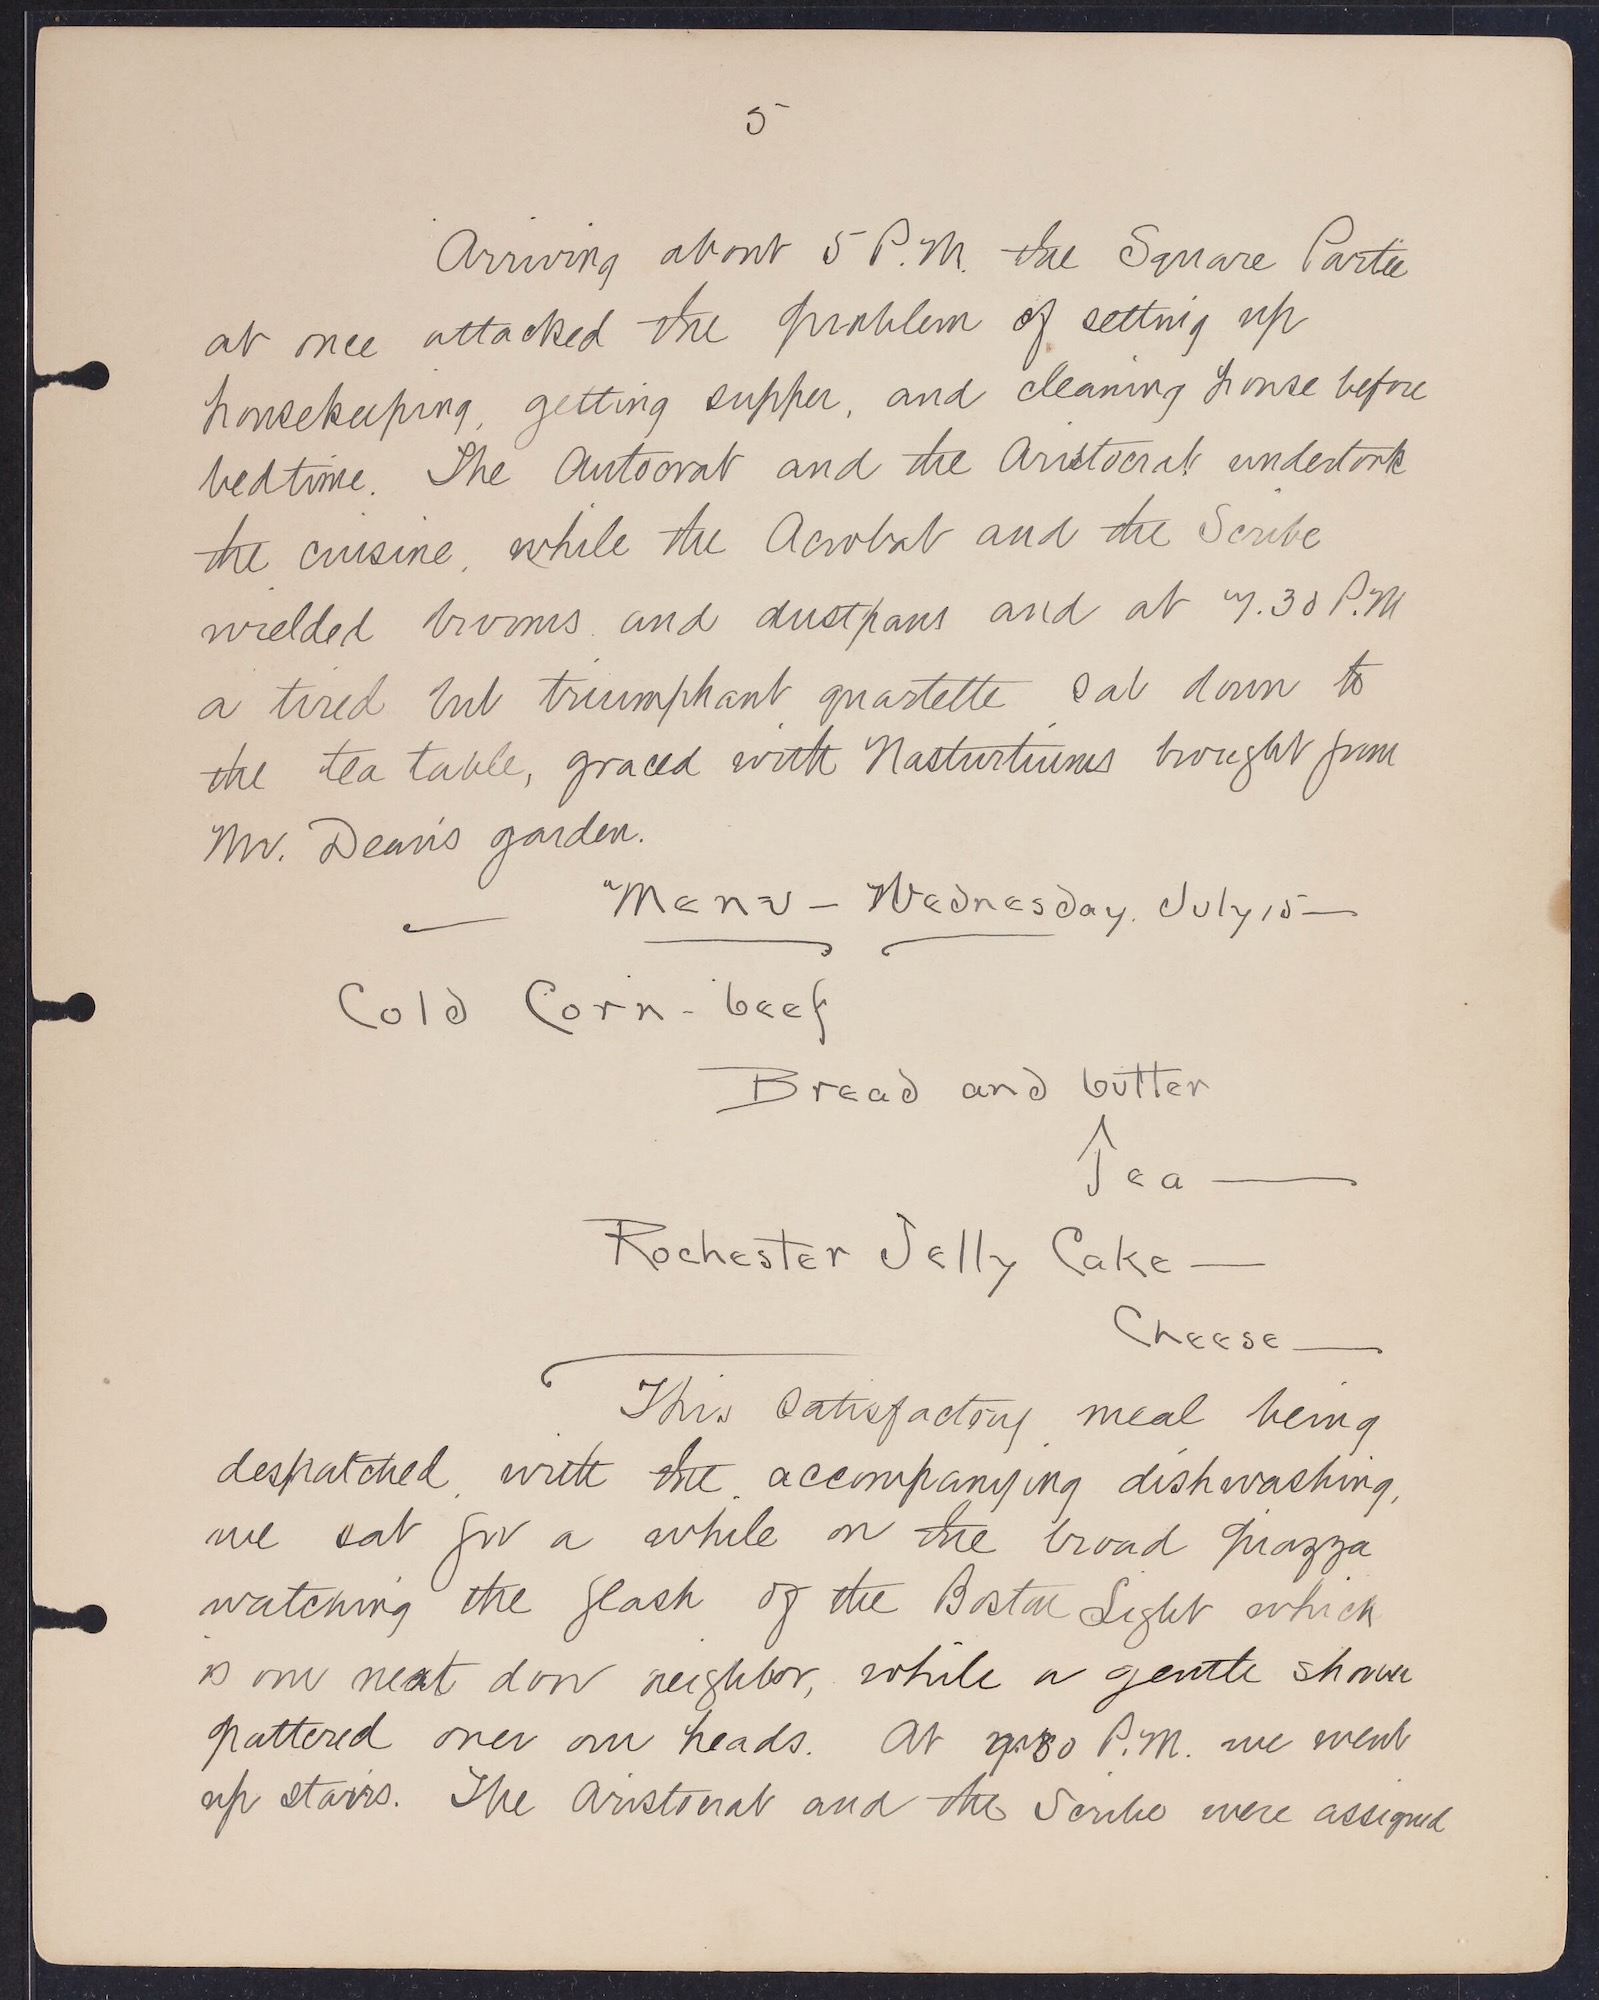 5
Arriving about 5 P.M. the Square Partie
at once attacked the problem of setting up
housekeeping, getting supper, and cleaning house before
bedtime. The Autocrat and the Aristocrat undertook
the cuisine, while the Acrobat and the Scribe
wielded brooms and dustpans and at 7.30 P.M
a tired but triumphant quartette sat down to
the tea table, graced with Nasturtiums brought from
Mr. Dean's garden.
"Menu – Wednesday. July 15 –
Cold Corn-beef
Bread and butter
Tea —
Rochester Jelly Cake —
Cheese —
This satisfactory meal being
despatched, with the accompanying dishwashing,
we sat for a while on the broad piazza
watching the flash of the Boston Light which
is our next door neighbor, while a gentle shower
pattered over our heads. At P.M. we went
up stairs. The Aristocrat and the Scribe were assigned